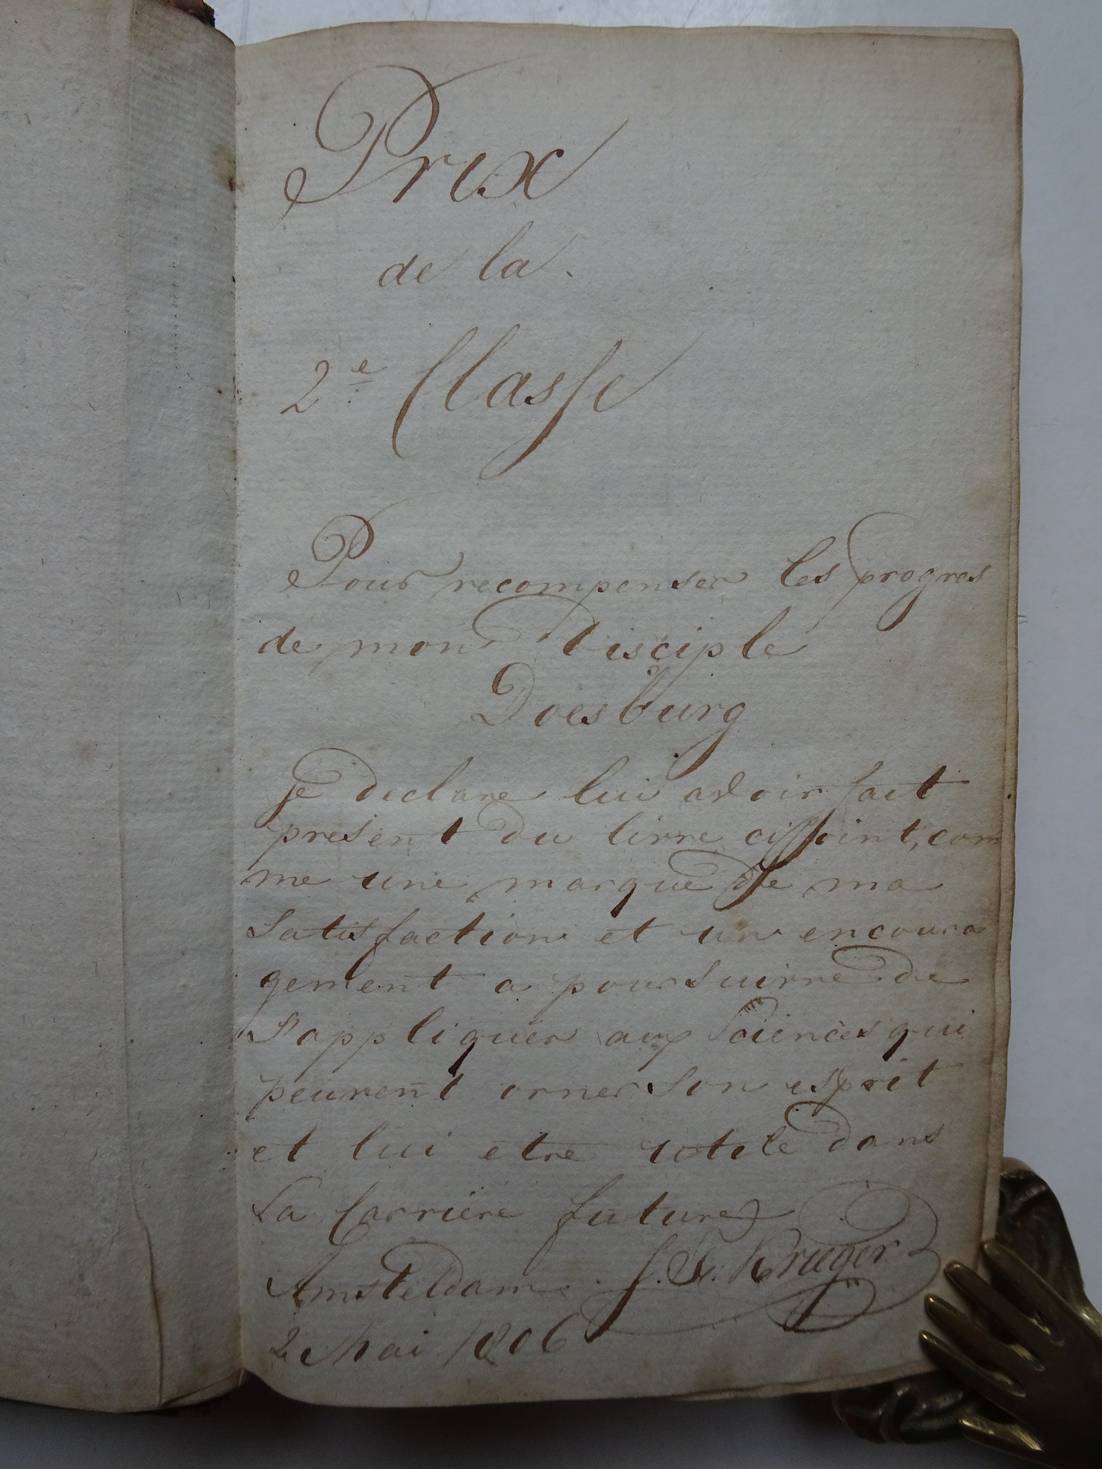 Prix
de la
2e Classe
Pour recompenser les progres
de mon Disciple
Doesburg
Je declare lui avoir fait
present du livre cijoint, com
me une marque de ma
Satisfaction et un encoura
gement a poursuivre de
S'appliquer aux Sciences qui
peuvent orner son esprit
et lui etre utile dans
La Carriere future
Amsteldam J. G. Kruger
2 Mai 1806